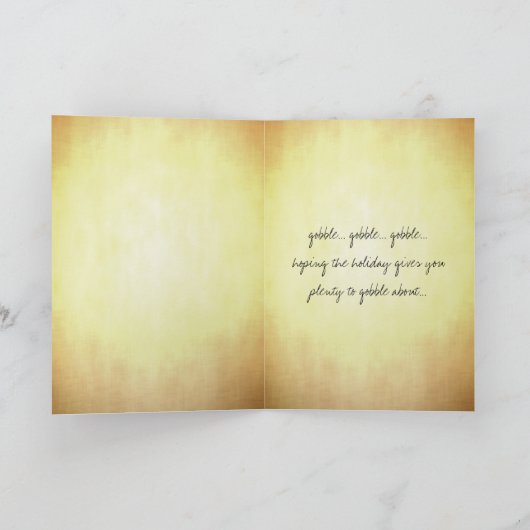 gobble... gobble... gobble...
hoping the holiday gives you
plenty to gobble about...